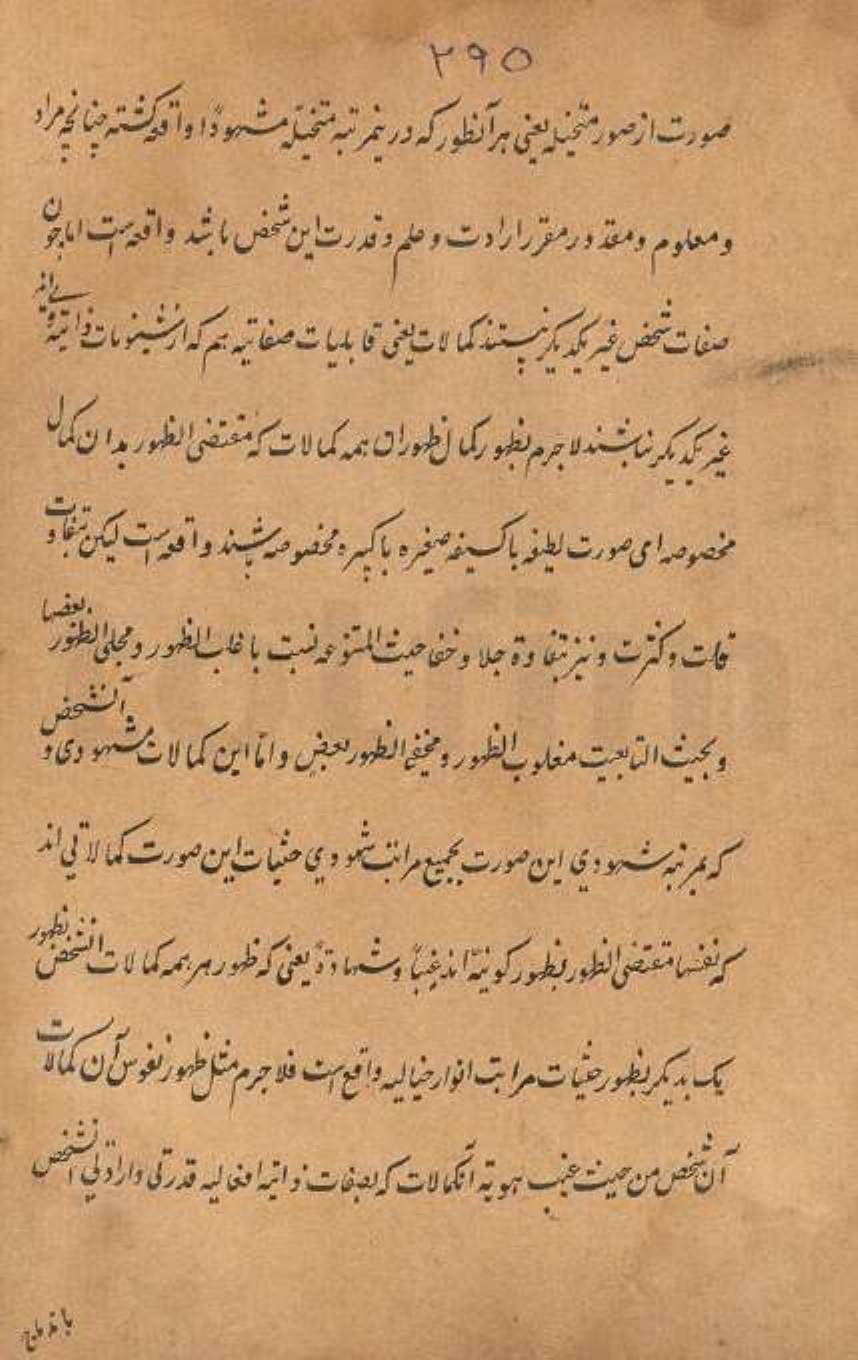 ۲۹۵
صورت از صور متخیله یعنی هر آنظور که در ینمرتبه متخیله مشهودًا واقع کشته چنانچه مراد
و معلوم و مقدور مقرر ارادت و علم و قدرت این شخص باشد واقعه است اما چون
صفات شخص غیر یکدیکر نیستند کمالات یعنی قابلیات صفاتیه هم که از شئونات ذاتیه وی اند
غیر یکدیکر نباشند لاجرم بظهور کمال ظهور ان همه کمالات که مقتضی الظهور بدان کمال
مخصوصه ای صورت لطیفه با کسیفه صغیره با کبیره مخصوصه باشند واقعه است لیکن بتفاوت
قلت و کثرت و نیز بتفاوة جلا و خفا حیث المتنوعه نسبت با غالب الظهور و مجلی الظهور بعضها
و بحیث التابعیت مغلوب الظهور و مخفی الظهور بعض و امّا این کمالات مشهودی و آنشخص
که بمرتبه شهودی این صورت بجمیع مراتب شهودی حثیات این صورت کمالاتی اند
که نفسها مقتضی الظهور بظهور کونیّه اند غیباً و شهادةً یعنی که ظهور هر همه کمالات انشخص بظهور
یک بدیکر بظهور حثیات مراتب انوار خیالیه واقع است فلاجرم مثل ظهور نفوس آن کمالات
آن شخص من حیث غیب هویة آنکمالات که بصفات ذواتیه افعالیه قدرتی و ارادتی انشخص